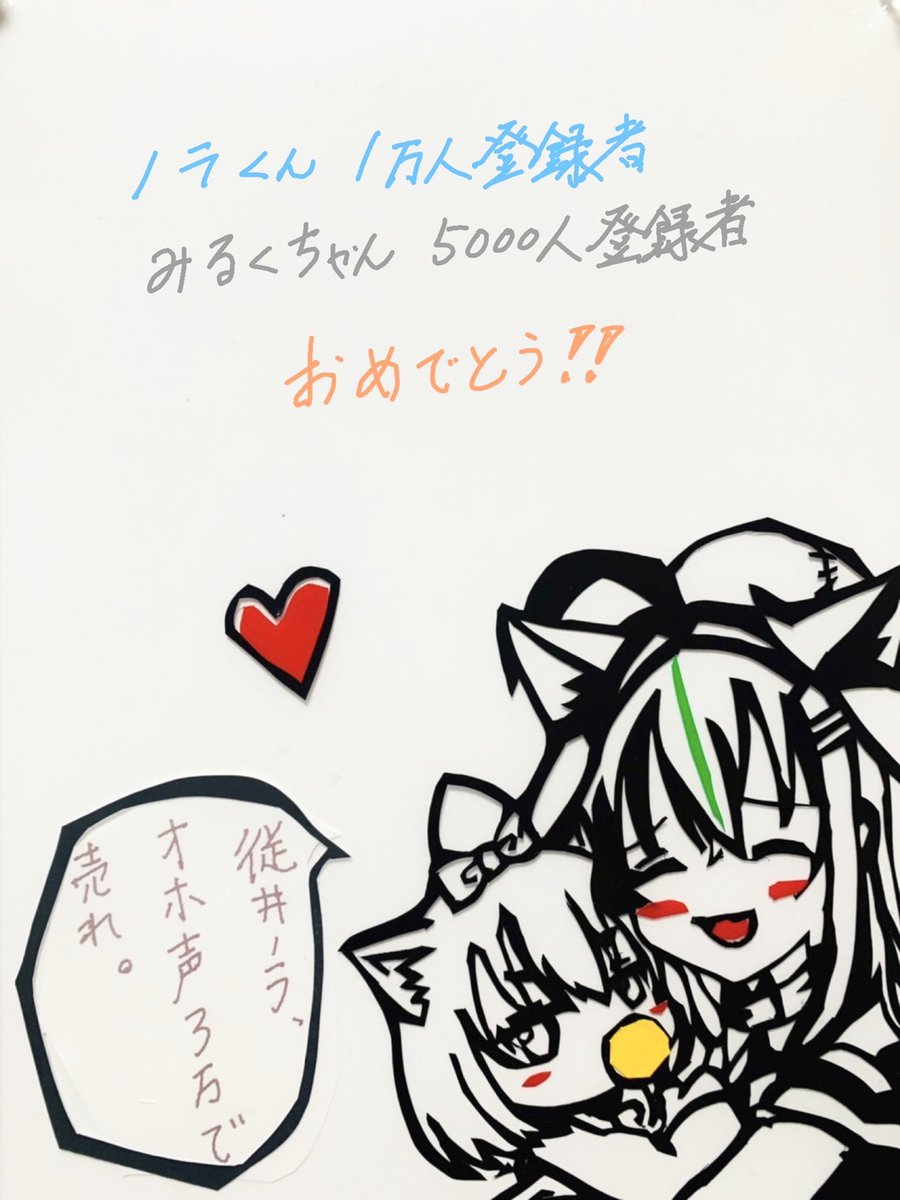 ノラくん 1万人登録者
みるくちゃん 5000人登録者
おめでとう!!
従井ノラ、
オホ声3万で
売れ。